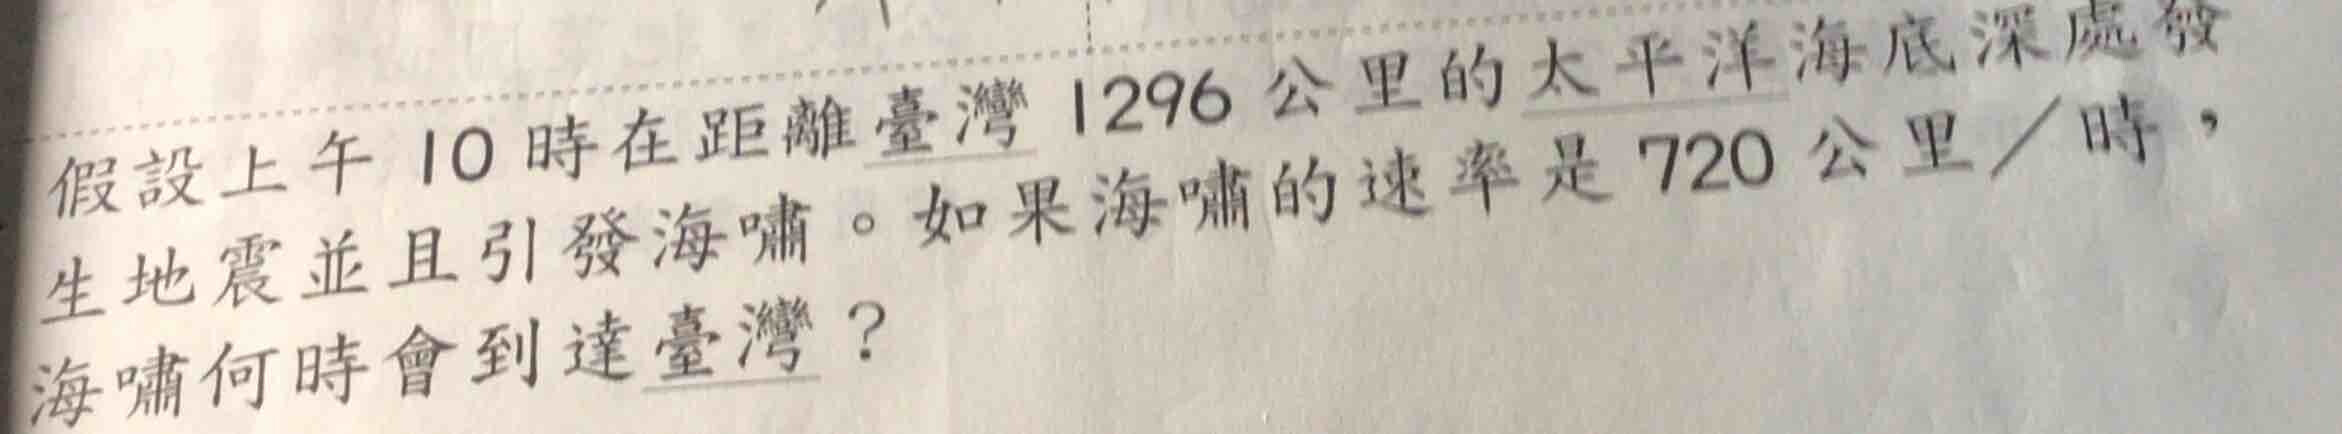 假設上午 10 時在距離臺灣 1296 公里的太平洋海底深處發
生地震並且引發海嘯。如果海嘯的速率是 720 公里／時，
海嘯何時會到達臺灣？